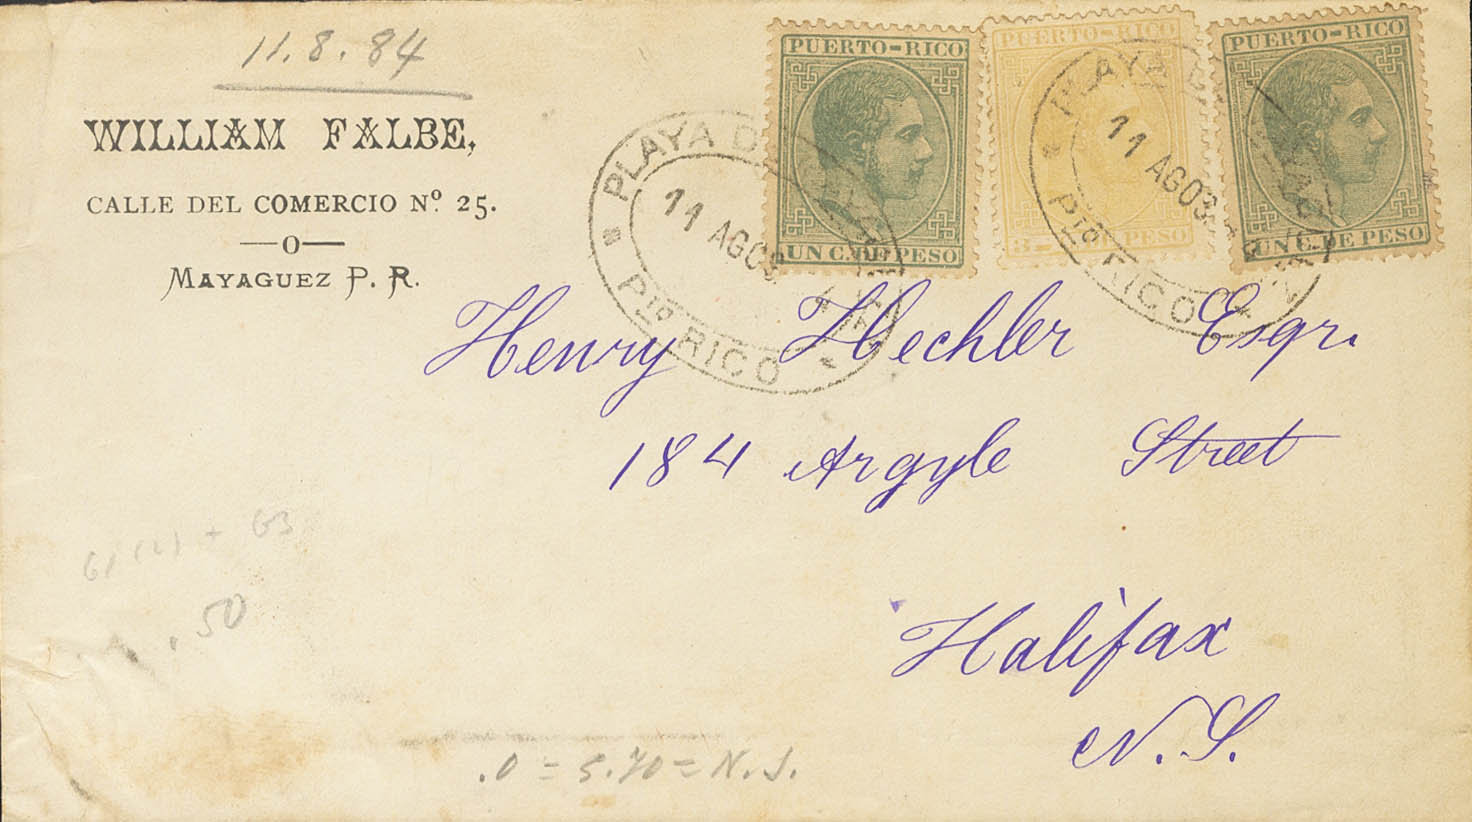 11.8.84
WILLIAM FALBE,
CALLE DEL COMERCIO Nº 25.
—o—
MAYAGUEZ P. R.
PUERTO-RICO
UN C. DE PESO
PUERTO-RICO
DE PESO
PUERTO-RICO
UN C. DE PESO
PLAYA DE
11 AGOS
Pto RICO
PLAYA
11 AGOS
Pto RICO
Henry Hechler Esqr.
184 Argyle Street
Halifax
N.S.
61 (2) + 63
.50
.0 = 5.70 = N.S.